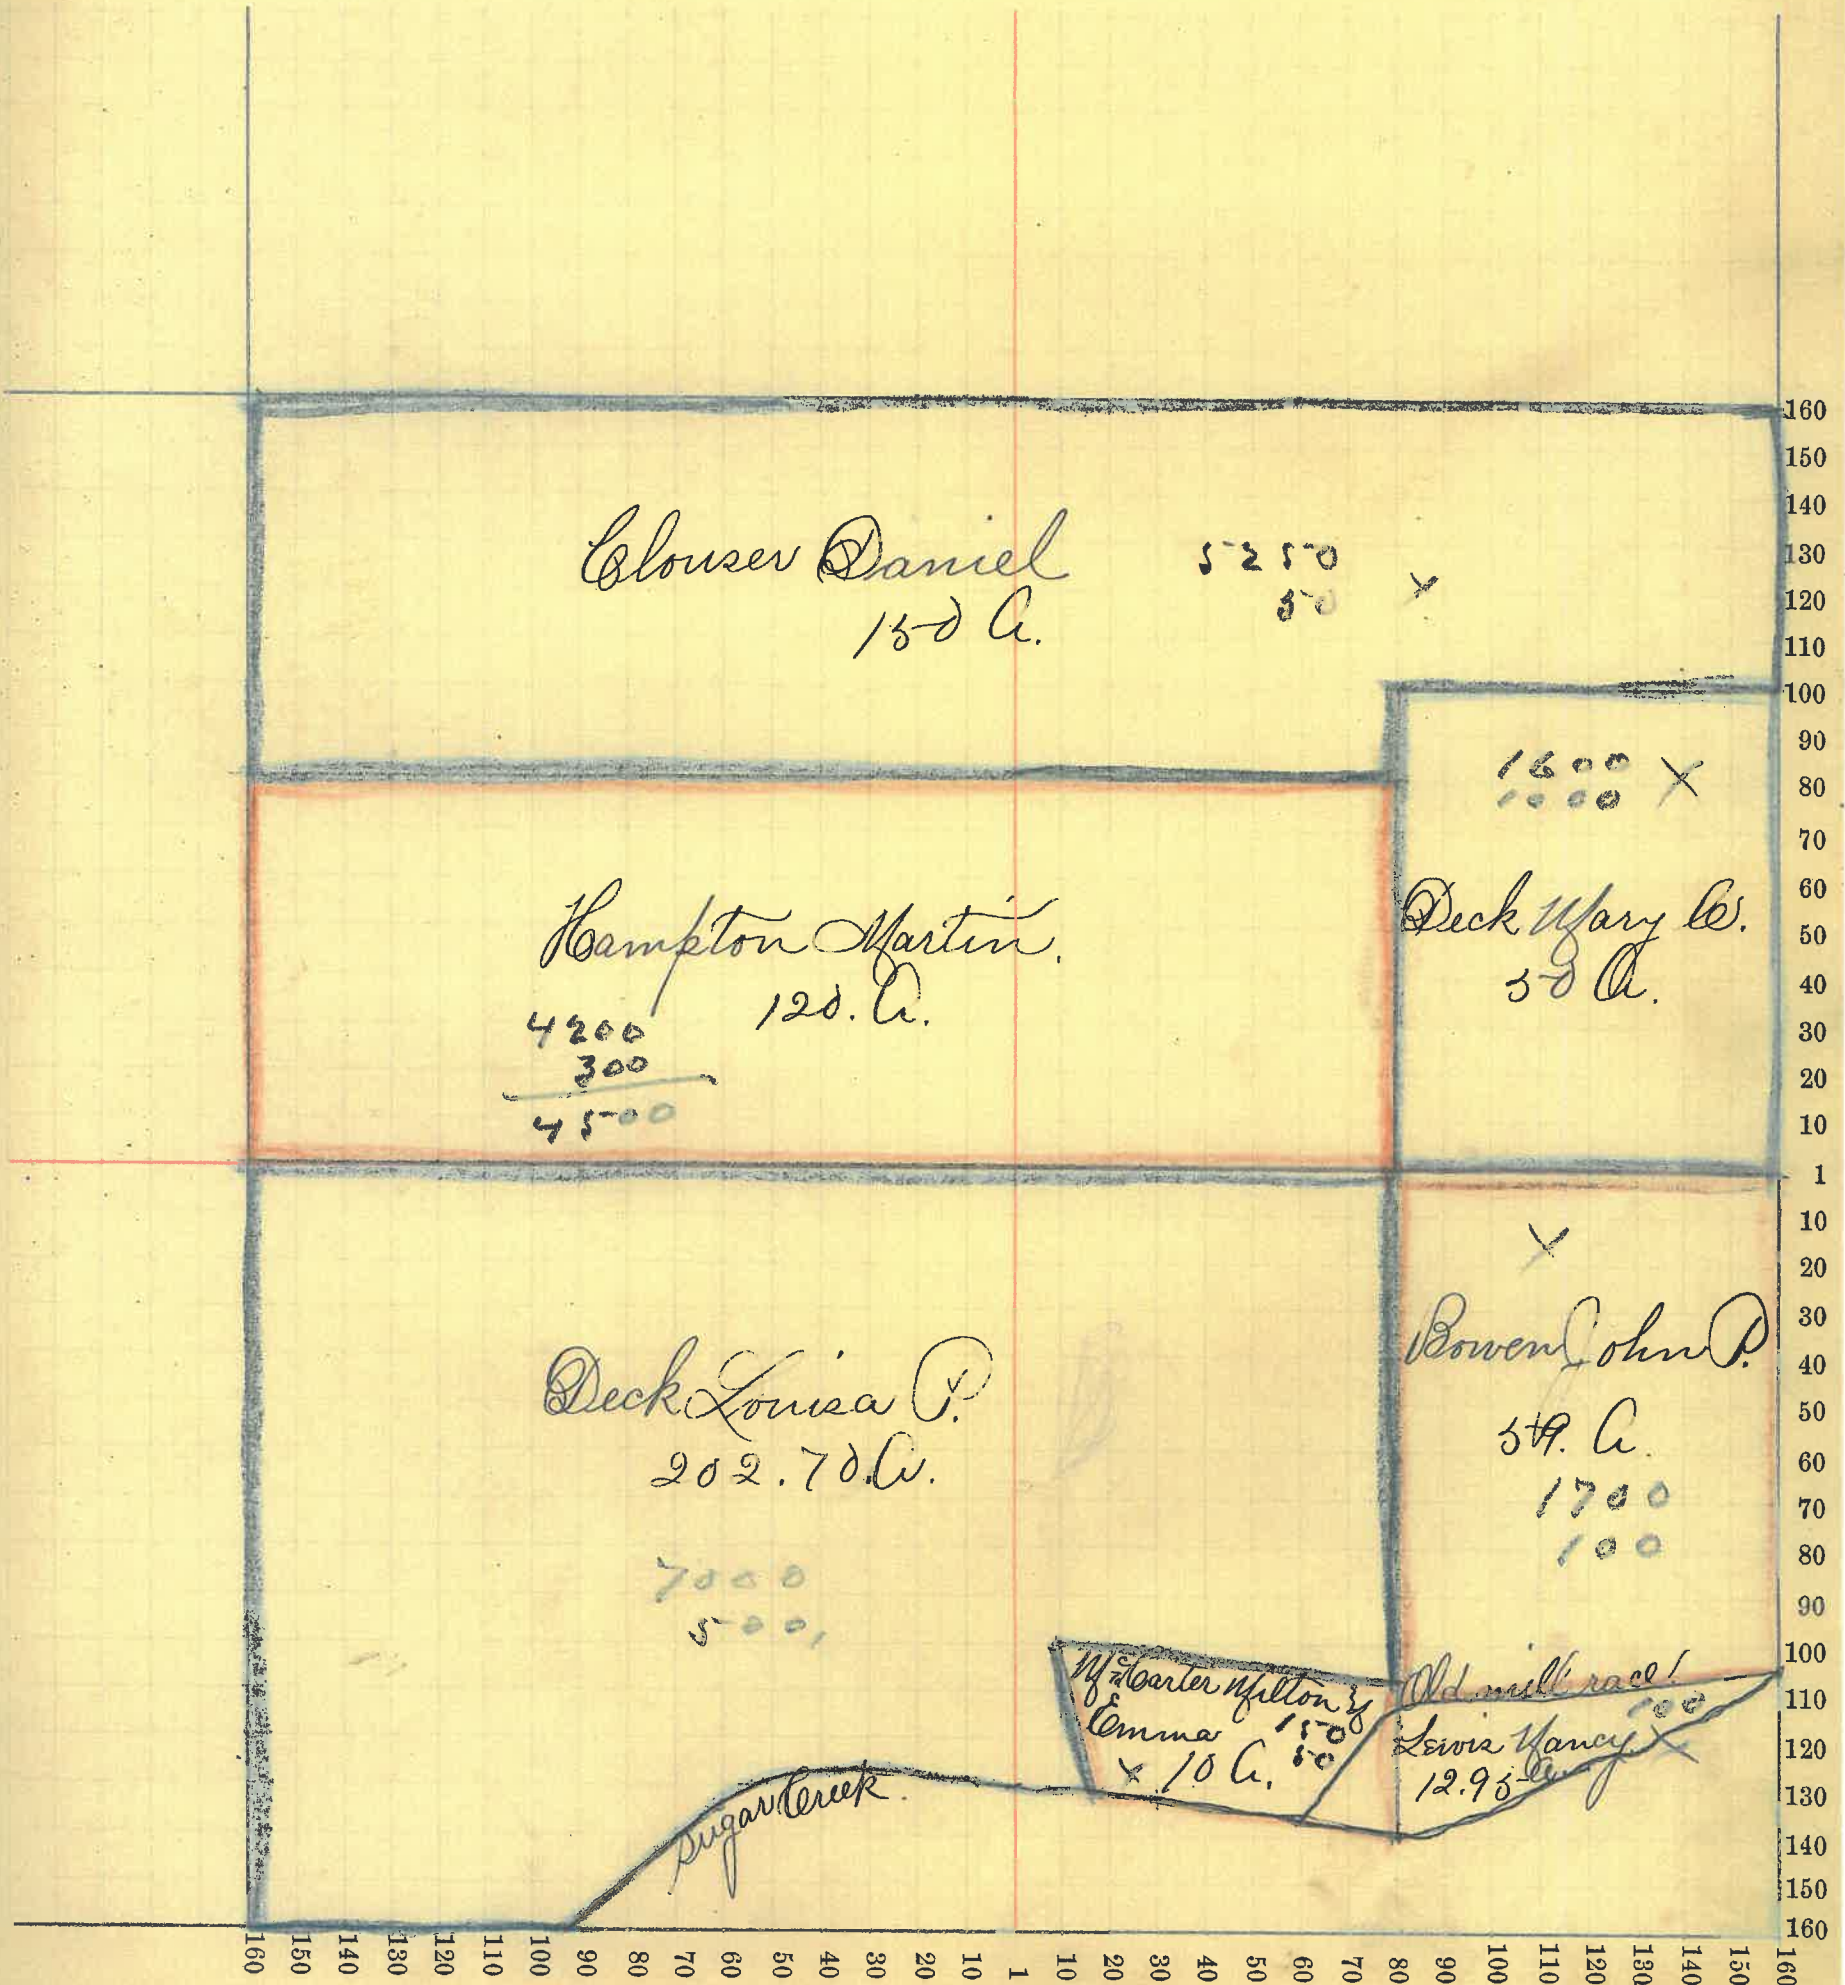 Clouser Daniel
150 A.
5250
50
X
1600 X
1000
Deck Mary C.
50 A.
Hampton Martin.
120. A.
4200
300
4500
X
Bowen John P.
A.
1700
100
Deck Louisa P.
202.70.A.
7000
500,
McCarter Milton &
Emma 150
X 10 A. 50
Old mill race!
100
Lewis Nancy X
12.95 A.
Sugar Creek.
160
150
140
130
120
110
100
90
80
70
60
50
40
30
20
10
1
10
20
30
40
50
60
70
80
90
100
110
120
130
140
150
160
160 150 140 130 120 110 100 90 80 70 60 50 40 30 20 10 1 10 20 30 40 50 60 70 80 90 100 110 120 130 140 150 160